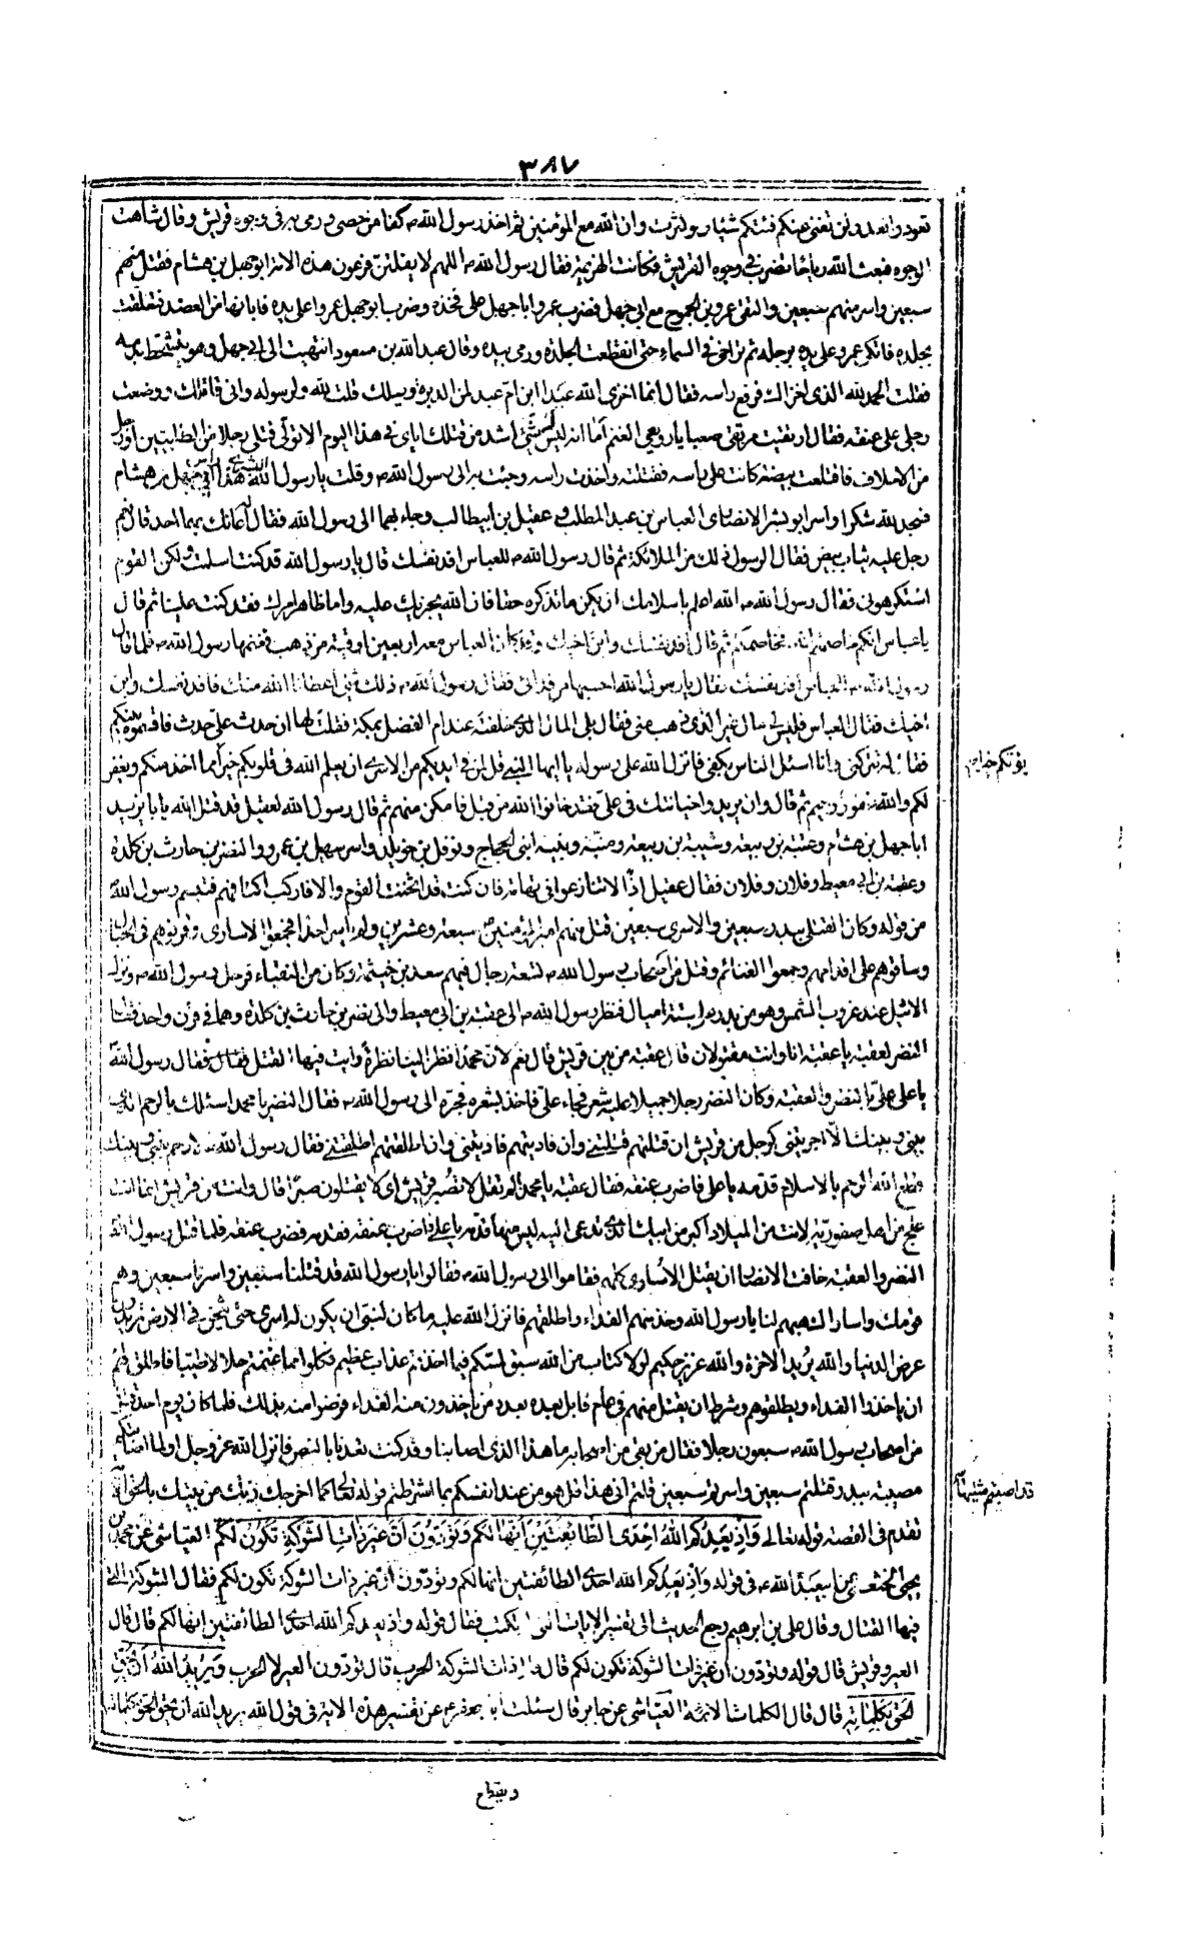 ٣٨٧
تعودوا نعد ولن تغنى عنكم فئتكم شيئا ولو كثرت وان الله مع المؤمنين ثم اخذ رسول الله ص كفا من حصى ورمى به فى وجوه قريش وقال شاهت
الوجوه فبعث الله رياحا تضرب فى وجوه القريش فكانت الهزيمة فقال رسول الله ص اللهم لا يفلتن فرعون هذه الامة ابو جهل بن هشام فقتل منهم
سبعين واسر منهم سبعين والتقى عمرو بن الجموح مع ابى جهل فضرب عمرو ابا جهل على فخذه وضرب ابو جهل عمروا على يده فابانها من العضد فتعلقت
بجلده فاتكى عمرو على يده برجله ثم تراخى فى السماء حتى انقطعت الجلدة ورمى بيده وقال عبد الله بن مسعود انتهيت الى ابى جهل وهو يتشحط بدمه
فقلت الحمد لله الذى اخزاك فرفع راسه فقال انما اخزى الله عبد ابن ام عبد لمن الدبرة ويلك قلت لله ولرسوله وانى قاتلك ووضعت
رجلى على عنقه فقال ارتقيت مرتقى صعبا يا رويعى الغنم أما انه ليس شئ اشد من قتلك اياى فى هذا اليوم الا تولى قتلى رجلا من المطلبيين او رجل
من الاحلاف فاقتلعت بيضة كانت على راسه فقتلته واخذت راسه وجئت به الى رسول الله ص وقلت يا رسول الله البشرى هذا راس ابى جهل بن هشام
فسجد لله شكرا واسر ابو بشر الانصارى العباس بن عبد المطلب وعقيل بن ابيطالب وجاء بهما الى رسول الله فقال له اعانك بهما احد قال نعم
رجل عليه ثياب بيض فقال الرسول ذلك من الملائكة ثم قال رسول الله ص للعباس افد نفسك قال يا رسول الله قد كنت اسلمت ولكن القوم
استكرهونى فقال رسول الله ص الله اعلم باسلامك ان يكن ما تذكره حقا فان الله يجزيك عليه واما ظاهر امرك فقد كنت علينا ثم قال
يا عباس انكم خاصمتم الله فخاصمكم ثم قال افد نفسك وابن اخيك وقد كان العباس معه اربعين اوقية من ذهب فغنمها رسول الله ص فلما قال
رسول الله ص للعباس افد نفسك فقال يا رسول الله احسبها من فدائى فقال رسول الله ص ذلك شئ اعطانا الله منك فافد نفسك وابن
اخيك فقال العباس فليس لى مال غير الذى ذهب منى فقال بلى المال الذى خلفته عند ام الفضل بمكة فقلت لها ان حدث على حدث فاقسموه بينكم
فقال له تتركنى وانا اسئل الناس بكفى فانزل الله على رسوله يا ايها النبى قل لمن فى ايديكم من الاسرى ان يعلم الله فى قلوبكم خيرا مما اخذ منكم ويغفر
لكم والله غفور رحيم ثم قال وان يريدوا خيانتك فى على فقد خانوا الله من قبل فامكن منهم ثم قال رسول الله لعقيل قد قتل الله يا بايزيد
ابا جهل بن هشام وعتبة بن ربيعة وشيبة بن ربيعة ومنبه ونبيه ابنى الحجاج ونوفل بن خويلد واسر سهيل بن عمرو والنضر بن حارث بن كلدة
وعقبة بن ابى معيط وفلان وفلان فقال عقيل اذا لا تنازعوا فى تهامة فان كنت قد اثخنت القوم والا فاركب اكتافهم فتبسم رسول الله
من قوله وكان القتلى ببدر سبعين والاسرى سبعين قتل منهم امير المؤمنين ع سبعة وعشرين ولم ياسر احدا فجمعوا الاسارى وقرنوهم فى الحبال
وساقوهم على اقدامهم وجمعوا الغنائم وقتل من اصحاب رسول الله ص تسعة رجال فيهم سعد بن خيثمة وكان من النقباء فرحل رسول الله ص ونزل
الاثيل عند غروب الشمس وهو من بدر على ستة اميال فنظر رسول الله ص الى عقبة بن ابى معيط والى نضر بن حارث بن كلدة وهما فى قرن واحد فقال
النضر لعقبة يا عقبة انا وانت مقتولان قال عقبة من بين قريش قال نعم لان محمدا نظر الينا نظرة رايت فيها القتل فقال رسول الله
يا على على بالنضر والعقبة وكان النضر رجلا جميلا عليه شعر فجاء على فاخذ بشعره فجره الى رسول الله ص فقال النضر يا محمد اسئلك بالرحم الذى
بينى وبينك الا اجريتنى كرجل من قريش ان قتلتهم قتلتنى وان فاديتهم فاديتنى وان اطلقتهم اطلقتنى فقال رسول الله ص لا رحم بينى وبينك
قطع الله الرحم بالاسلام قدمه يا على فاضرب عنقه فقال عقبة يا محمد الم تقل لا تصبر قريش اى لا يقتلون صبرا قال وانت من قريش انما انت
علج من اهل صفورية لانت من الميلاد اكبر من ابيك الذى تدعى اليه ليس منها قدمه يا على فاضرب عنقه فقدمه فضرب عنقه فلما قتل رسول الله
النضر والعقبة خافت الانصار ان يقتل الاسارى كلهم فقاموا الى رسول الله ص فقالوا يا رسول الله قد قتلنا سبعين واسرنا سبعين وهم
قومك واساراك هبهم لنا يا رسول الله وخذ منهم الفداء واطلقهم فانزل الله عليه ما كان لنبى ان يكون له اسرى حتى يثخن فى الارض تريدون
عرض الدنيا والله يريد الاخرة والله عزيز حكيم لولا كتاب من الله سبق لمسكم فيما اخذتم عذاب عظيم فكلوا مما غنمتم حلالا طيبا فاطلق لهم
ان ياخذوا الفداء ويطلقوهم وشرط ان يقتل منهم فى عام قابل بعدد من ياخذون منه الفداء فرضوا منه بذلك فلما كان يوم احد قتل
من اصحاب رسول الله ص سبعون رجلا فقال من بقى من اصحابه ما هذا الذى اصابنا وقد كنت تعدنا بالنصر فانزل الله عز وجل اولما اصابتكم
مصيبة ببدر قتلتم سبعين واسرتم سبعين قلتم انى هذا قل هو من عند انفسكم بما اشترطتم قوله تعالى كما اخرجك ربك من بيتك بالحق
تقدم فى القصة قوله تعالى وَاِذْ يَعِدُكُمُ اللهُ اِحْدَى الطَّائِفَتَيْنِ اَنَّهَا لَكُمْ وَتَوَدُّونَ اَنَّ غَيْرَ ذَاتِ الشَّوْكَةِ تَكُونُ لَكُمْ العياشى عن محمد بن
يحيى الخثعمى عن ابيعبد الله ع فى قوله واذ يعدكم الله احدى الطائفتين انها لكم وتودون ان غير ذات الشوكة تكون لكم فقال الشوكة التى
فيها القتال وقال على بن ابراهيم رجع الحديث الى تفسير الايات التى لم تكتب فقال قوله واذ يعدكم الله احدى الطائفتين انها لكم قال قال
العير وقريش قال قوله وتودون ان غير ذات الشوكة تكون لكم قال ذات الشوكة الحرب قال تودون العير لا الحرب وَيُرِيدُ اللهُ اَنْ يُحِقَّ
الحَقَّ بِكَلِمَاتِهِ قال قال الكلمات الائمة العياشى عن جابر قال سئلت ابا جعفر ع عن تفسير هذه الاية فى قول الله يريد الله ان يحق الحق بكلماته
يؤتكم خيرا
قد اصبتم مثليها
ويقطع